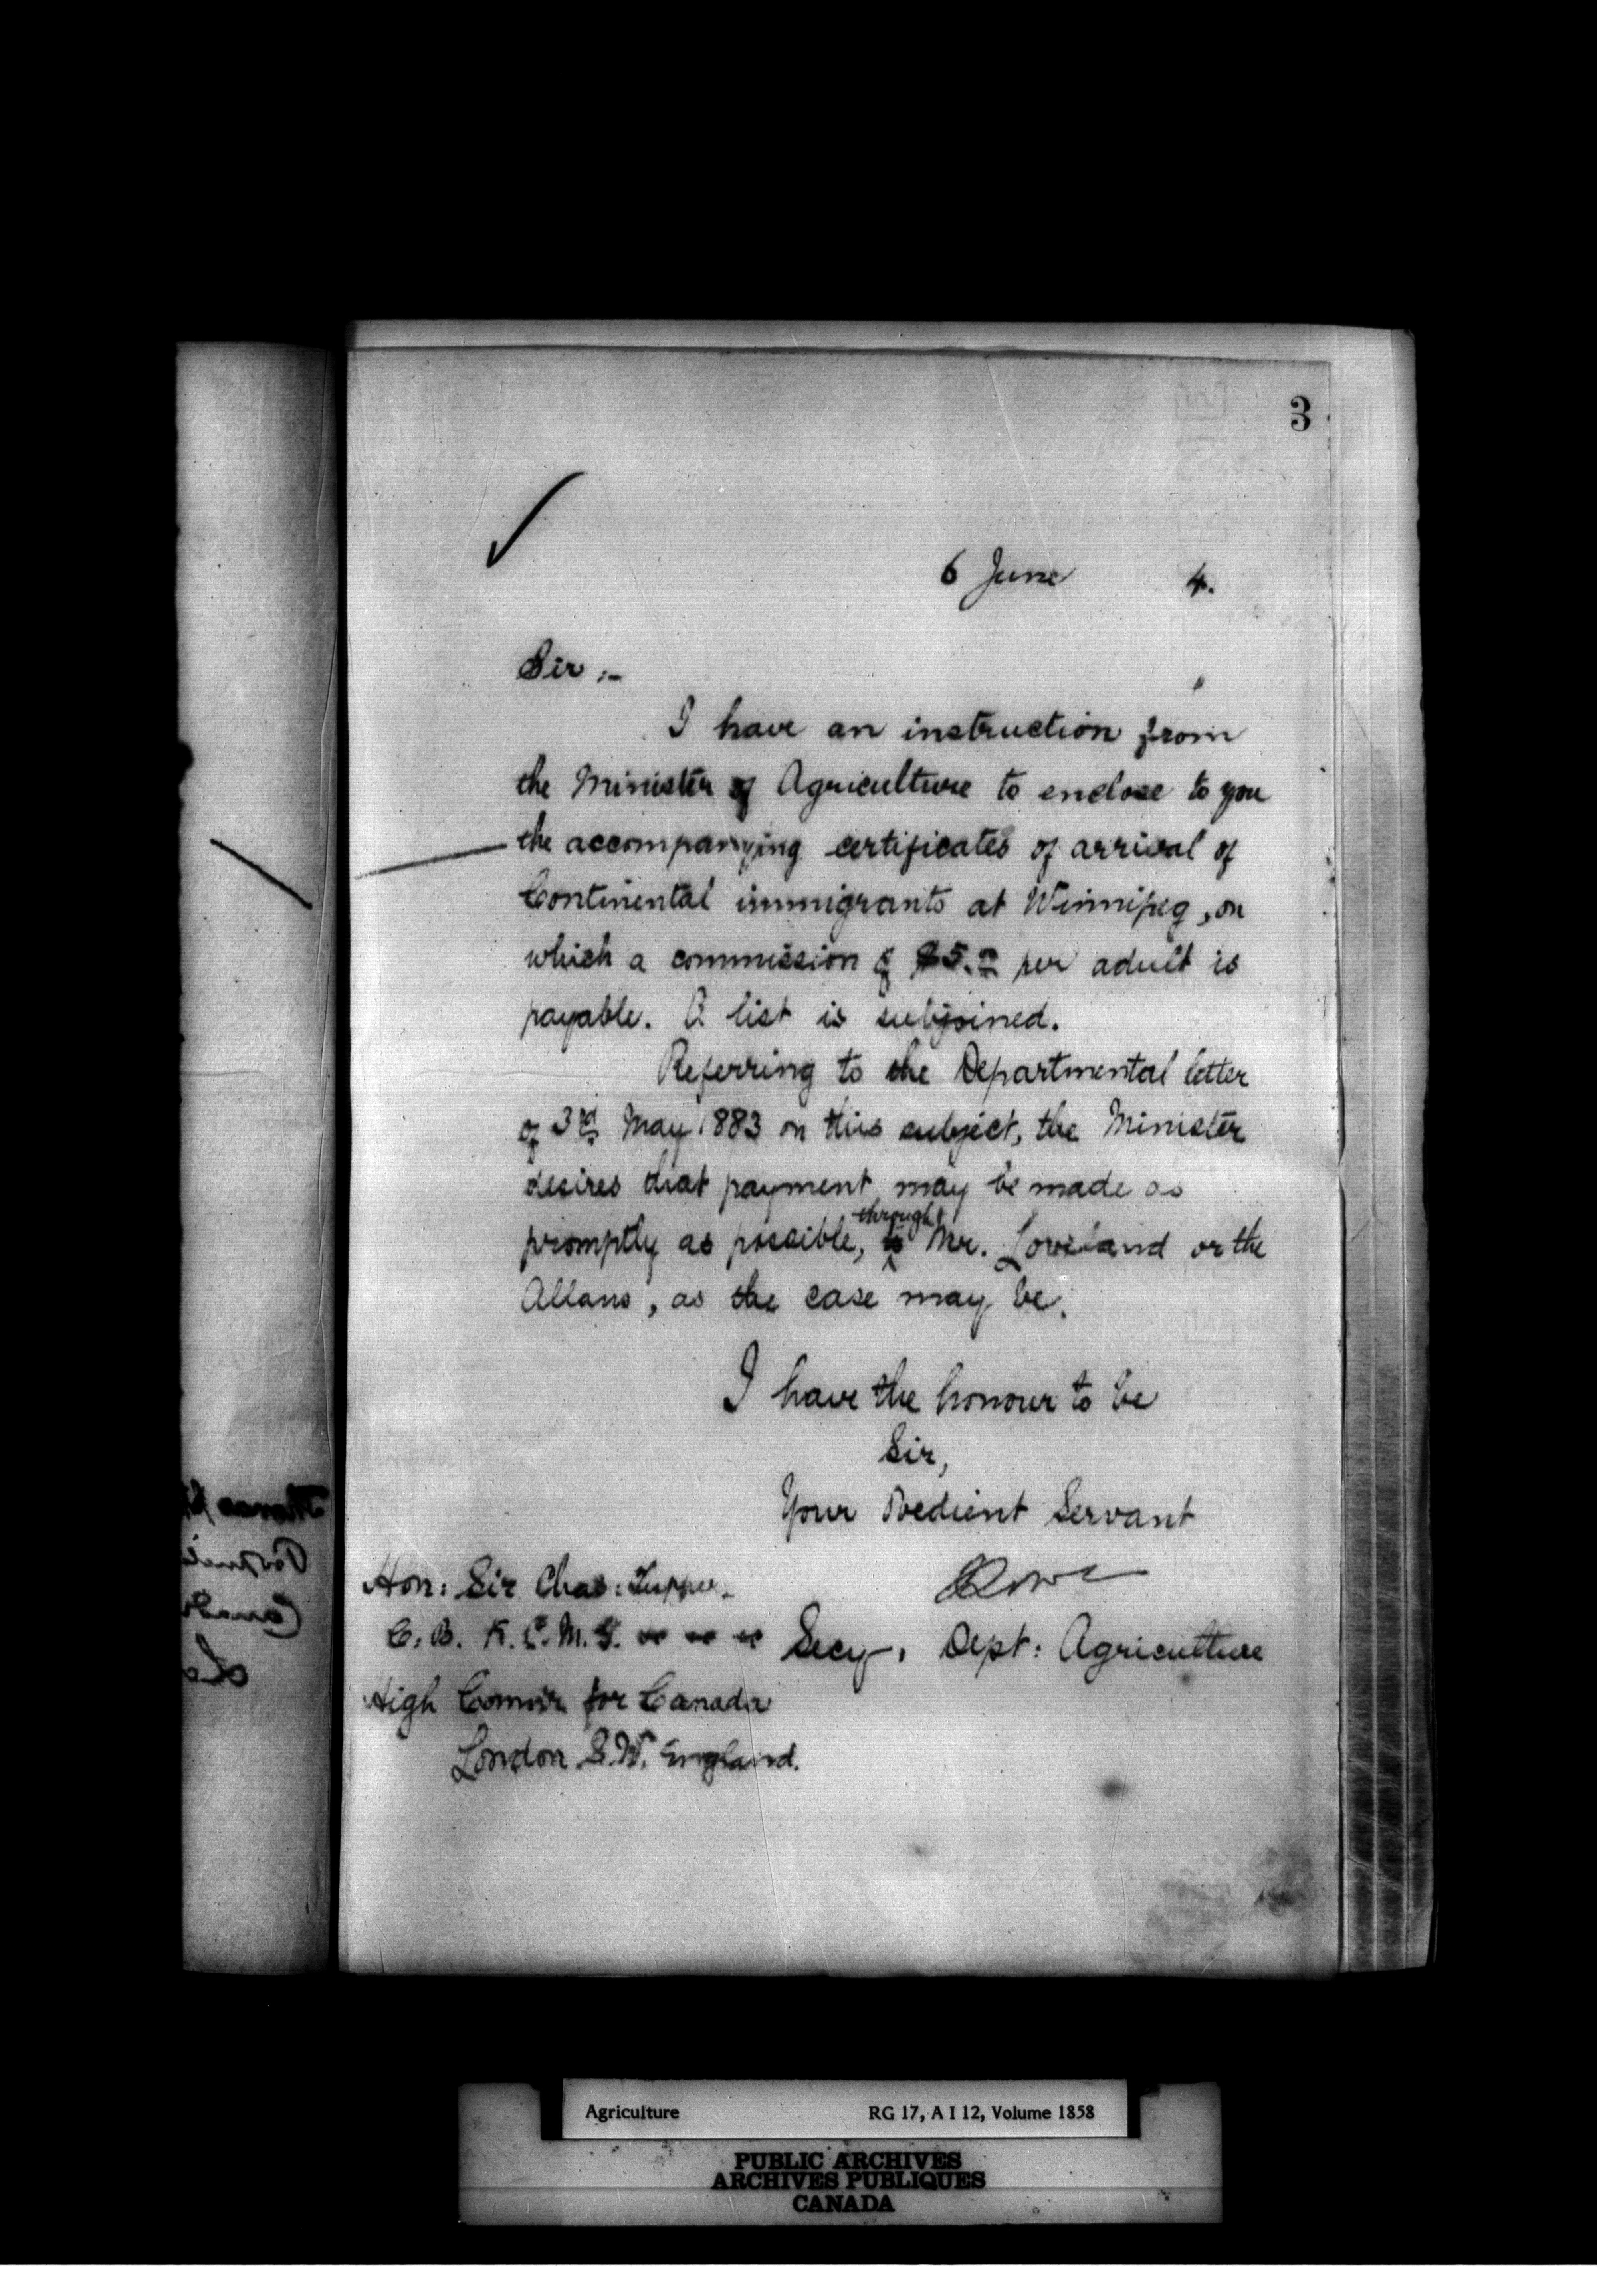 3
6 June 4.
Sir :-
I have an instruction from
the Minister of Agriculture to enclose to you
the accompanying certificates of arrival of
Continental immigrants at Winnipeg, on
which a commission of $5.00 per adult is
payable. A list is subjoined.
Referring to the Departmental letter
of 3rd May 1883 on this subject, the Minister
desires that payment may be made as
promptly as possible, through Mr. Loveland or the
Allans, as the case may be.
I have the honour to be
Sir,
Your Obedient Servant
Hon: Sir Chas: Tupper
C. B. K. C. M. G.
Secy, Dept: Agriculture
High Commr for Canada
London S.W. England.
Agriculture RG 17, A I 12, Volume 1858
PUBLIC ARCHIVES
ARCHIVES PUBLIQUES
CANADA